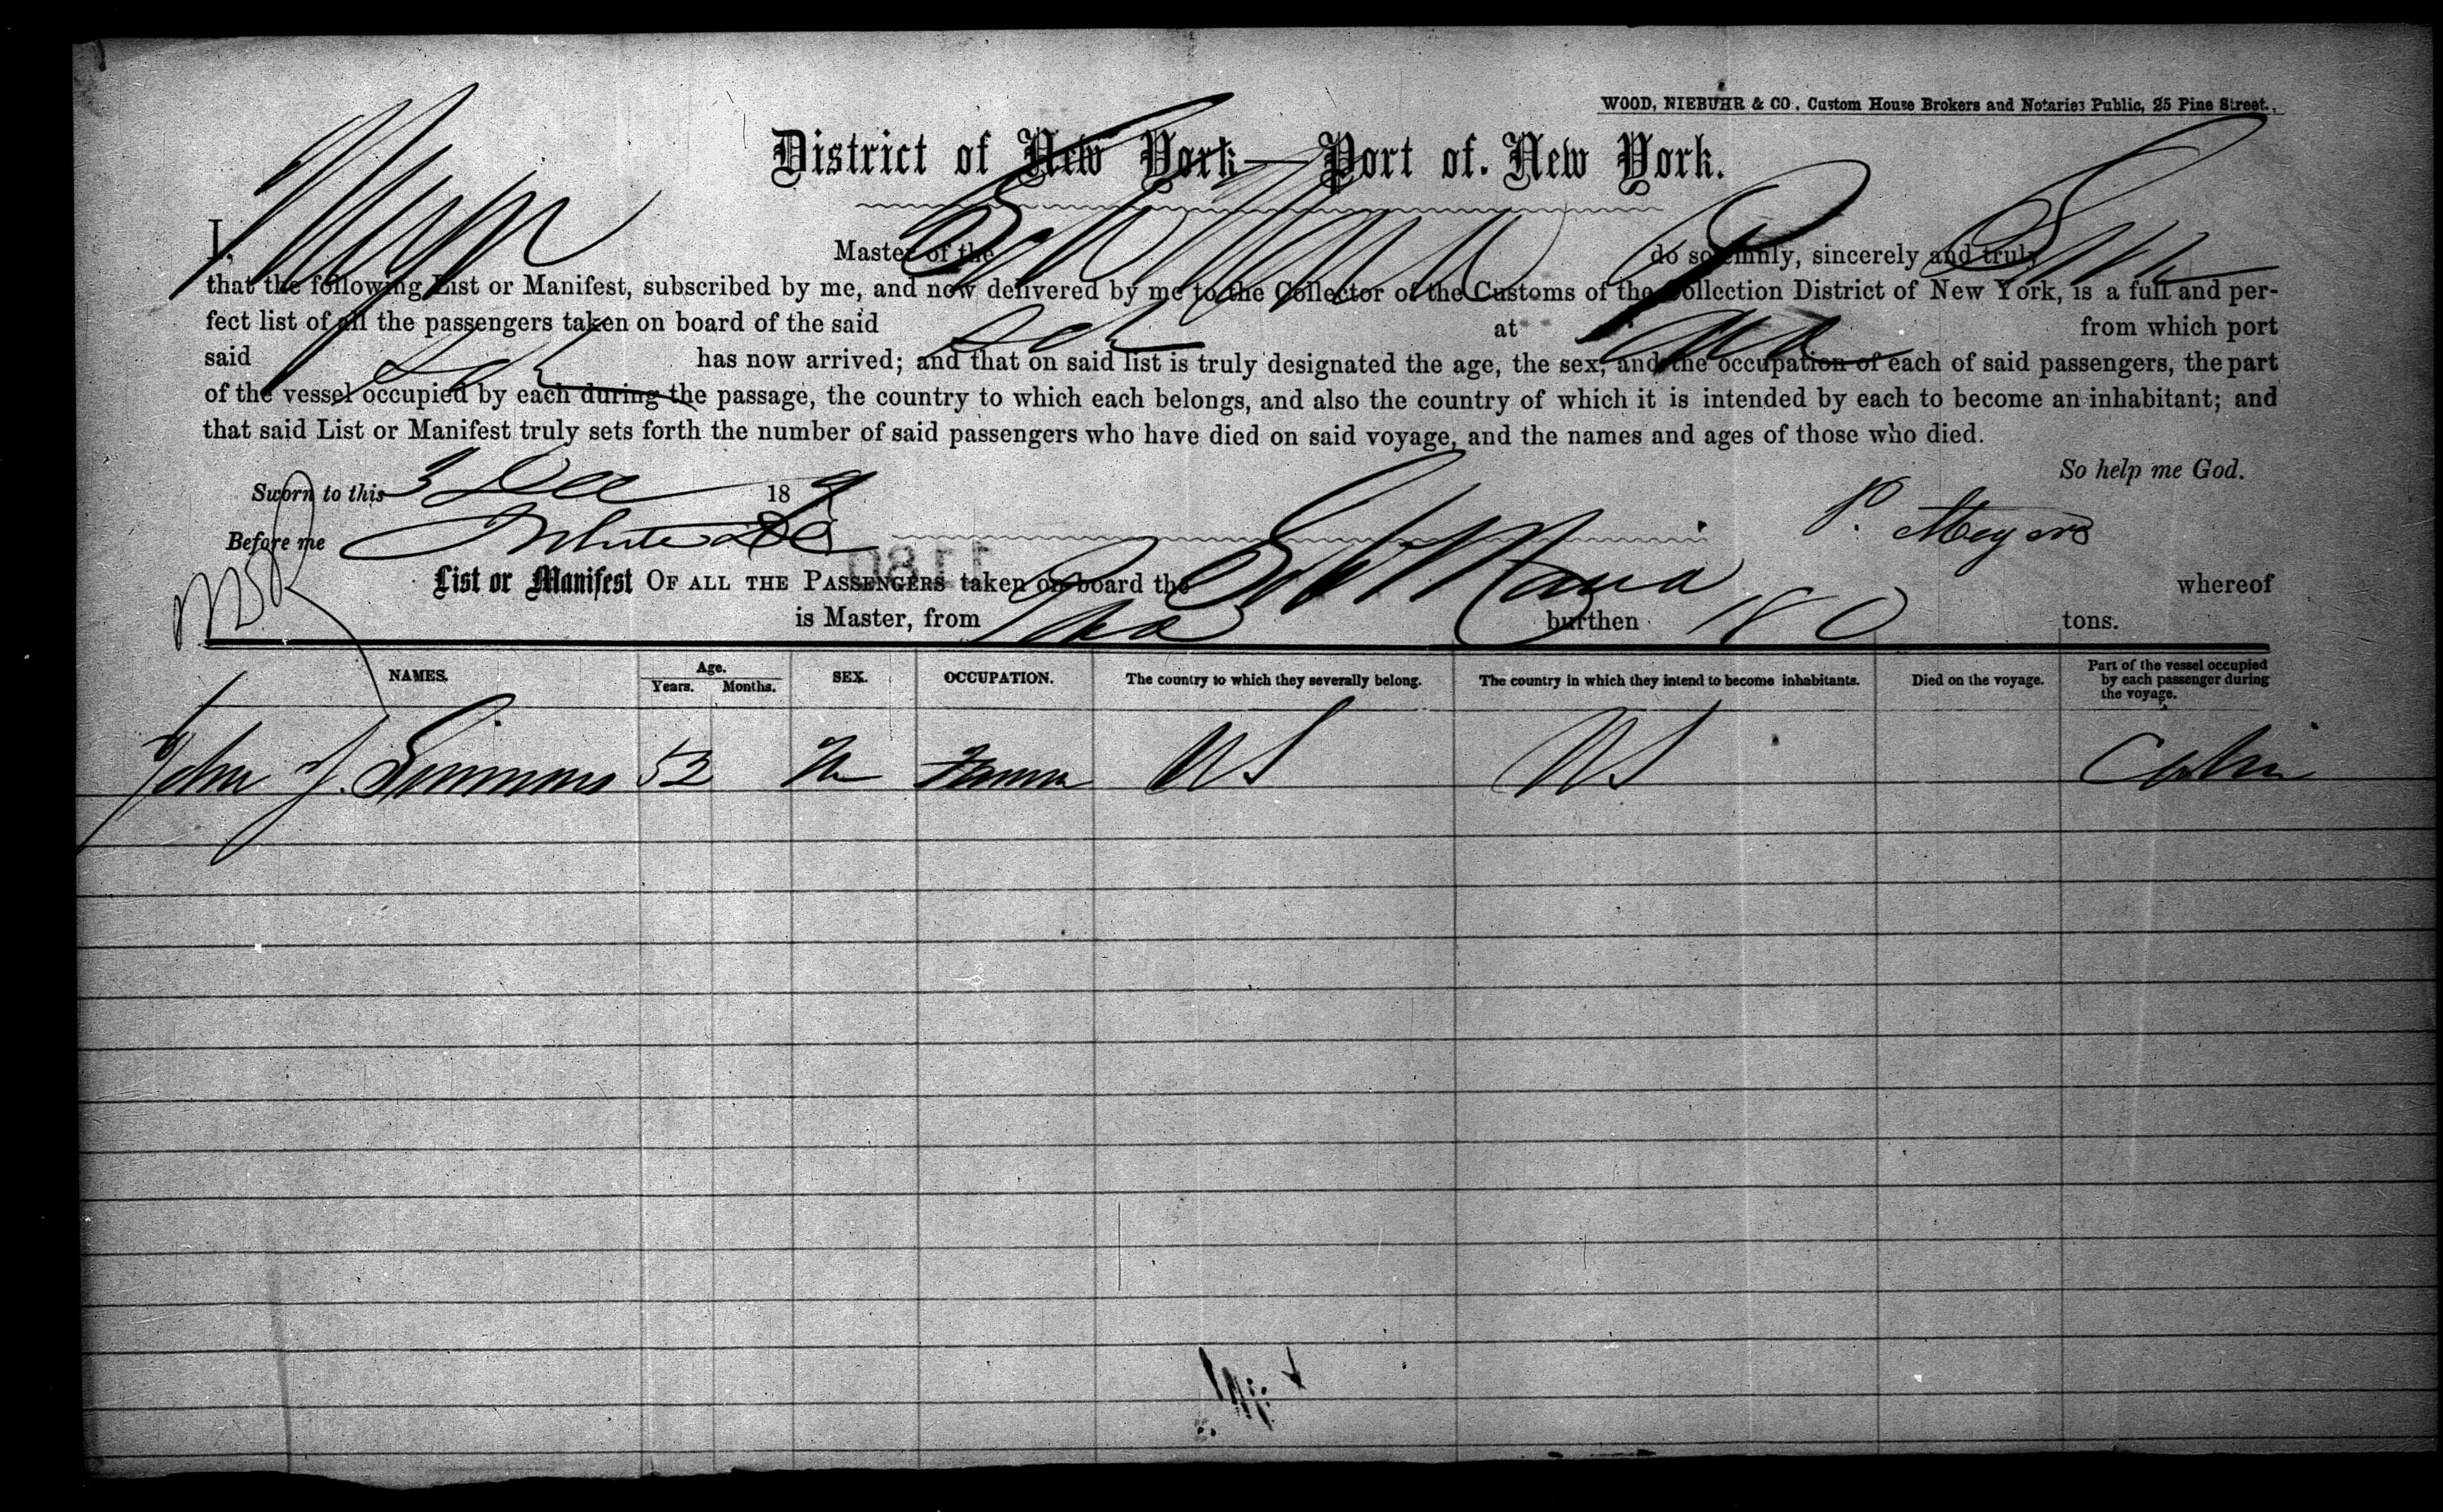 WOOD, NIEBUHR & CO., Custom House Brokers and Notaries Public, 25 Pine Street.
District of New York—Port of. New York.
I, Master of the do solemnly, sincerely and truly
that the following List or Manifest, subscribed by me, and now delivered by me to the Collector of the Customs of the Collection District of New York, is a full and per-
fect list of all the passengers taken on board of the said Sch at from which port
said Sch has now arrived; and that on said list is truly designated the age, the sex, and the occupation of each of said passengers, the part
of the vessel occupied by each during the passage, the country to which each belongs, and also the country of which it is intended by each to become an inhabitant; and
that said List or Manifest truly sets forth the number of said passengers who have died on said voyage, and the names and ages of those who died.
So help me God.
Sworn to this 3 Dec 189
Before me
P. Meyers
1180
List or Manifest OF ALL THE PASSENGERS taken on board the whereof
is Master, from burthen 180 tons.
NAMES. Age. Years. Months. SEX. OCCUPATION. The country to which they severally belong. The country in which they intend to become inhabitants. Died on the voyage. Part of the vessel occupied by each passenger during the voyage.
John J. Simmons 53 M US US Cabin